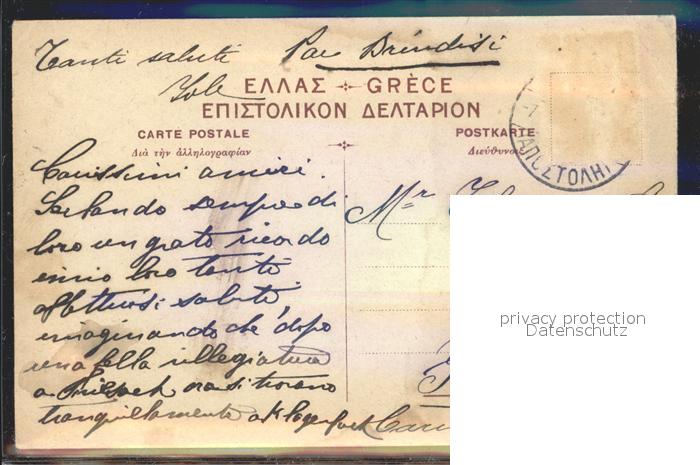 Tanti saluti Par Brindisi
Iole
ΕΛΛΑΣ GRÈCE
ΕΠΙΣΤΟΛΙΚΟΝ ΔΕΛΤΑΡΙΟΝ
CARTE POSTALE POSTKARTE
Διὰ τὴν ἀλληλογραφίαν Διεύθυνσις
ΑΠΟΣΤΟΛΗ
Carissimi amici.
Serbando sempre di
loro un grato ricordo
invio loro tanti
affettuosi saluti,
immaginando che dopo
una bella villegiatura
a ora si trovano
tranquillamente a Klagenfurt
Mr
privacy protection
Datenschutz